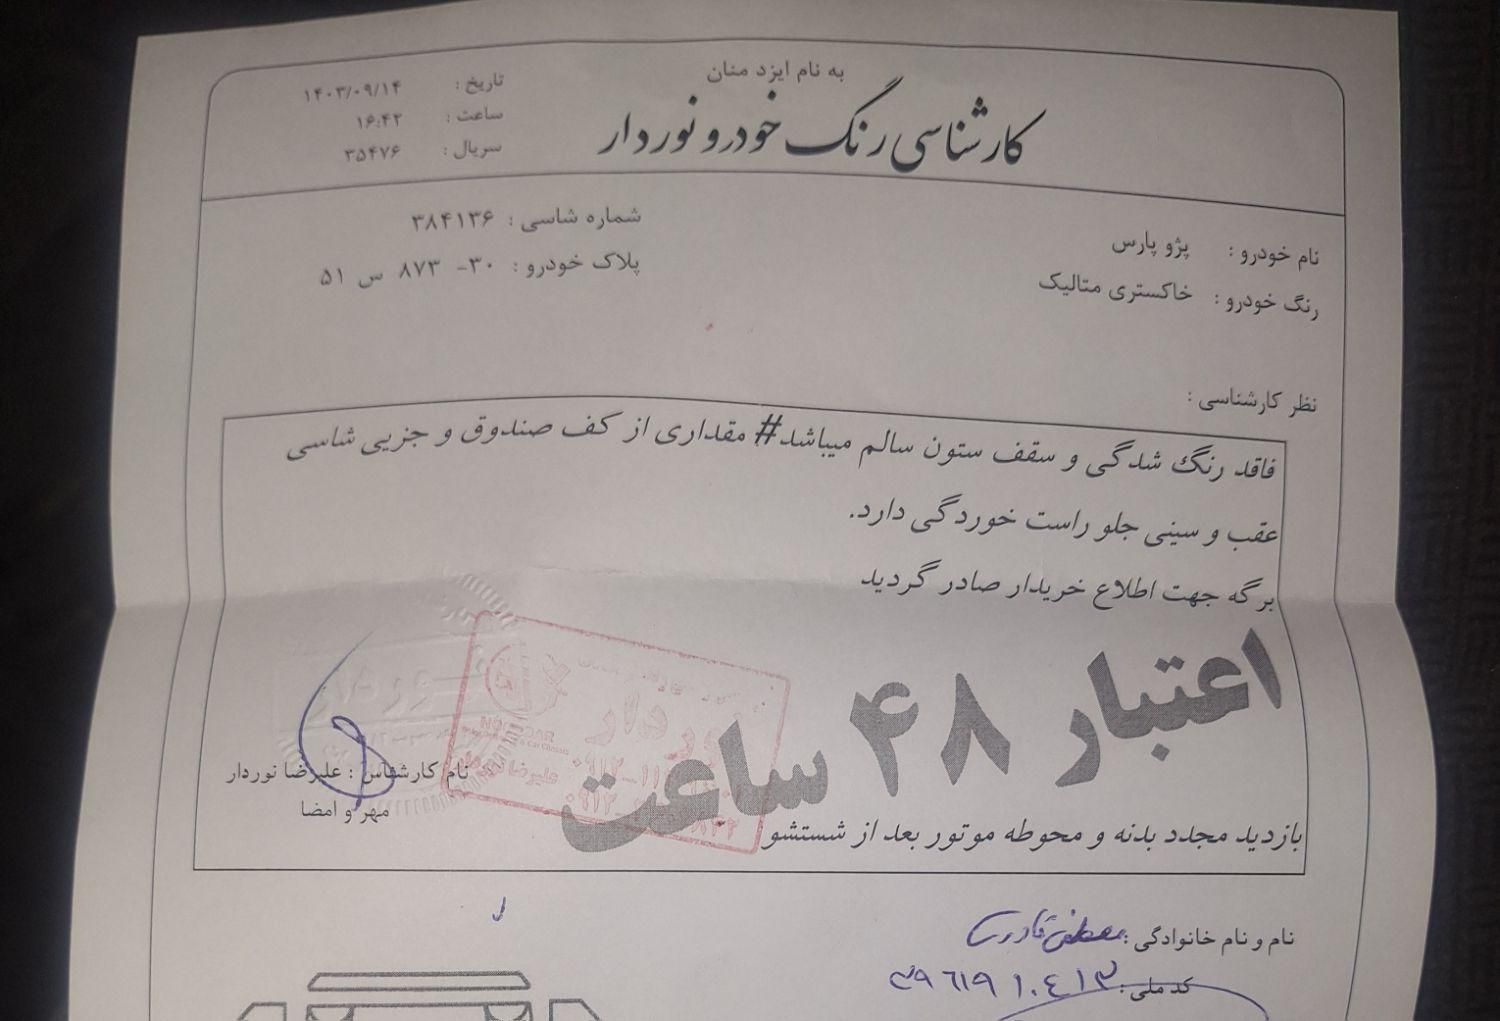 به نام ایزد منان
کارشناسی رنگ خودرو نوردار
تاریخ : ۱۴۰۳/۰۹/۱۴
ساعت : ۱۶:۴۲
سریال : ۳۵۴۷۶
نام خودرو : پژو پارس
شماره شاسی : ۳۸۴۱۳۶
رنگ خودرو : خاکستری متالیک
پلاک خودرو : ۳۰- ۸۷۳ س ۵۱
نظر کارشناسی :
فاقد رنگ شدگی و سقف ستون سالم میباشد# مقداری از کف صندوق و جزیی شاسی
عقب و سینی جلو راست خوردگی دارد.
برگه جهت اطلاع خریدار صادر گردید
اعتبار ۴۸ ساعت
نوردار
علیرضا
نام کارشناس : علیرضا نوردار
مهر و امضا
بازدید مجدد بدنه و محوطه موتور بعد از شستشو
نام و نام خانوادگی : مصطفی
کد ملی :